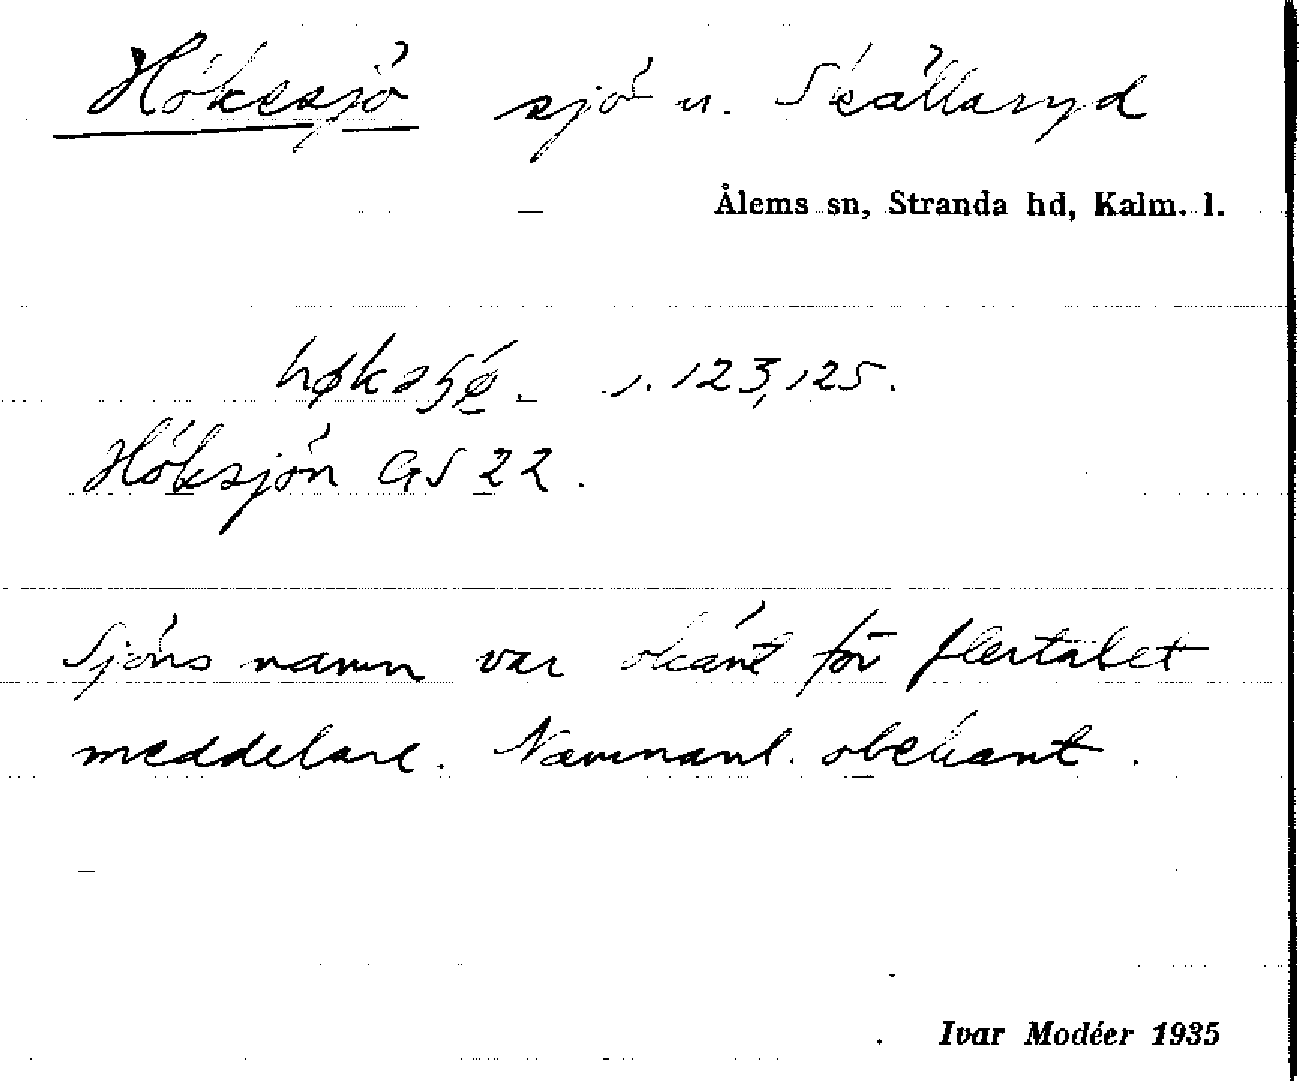 Höksjö sjö u. Skällaryd
Ålems sn, Stranda hd, Kalm. l.
s. 123, 125.
Höksjön GS 22.
Sjöns namn var okänt för flertalet
meddelare. Namnanl. obekant.
Ivar Modéer 1935